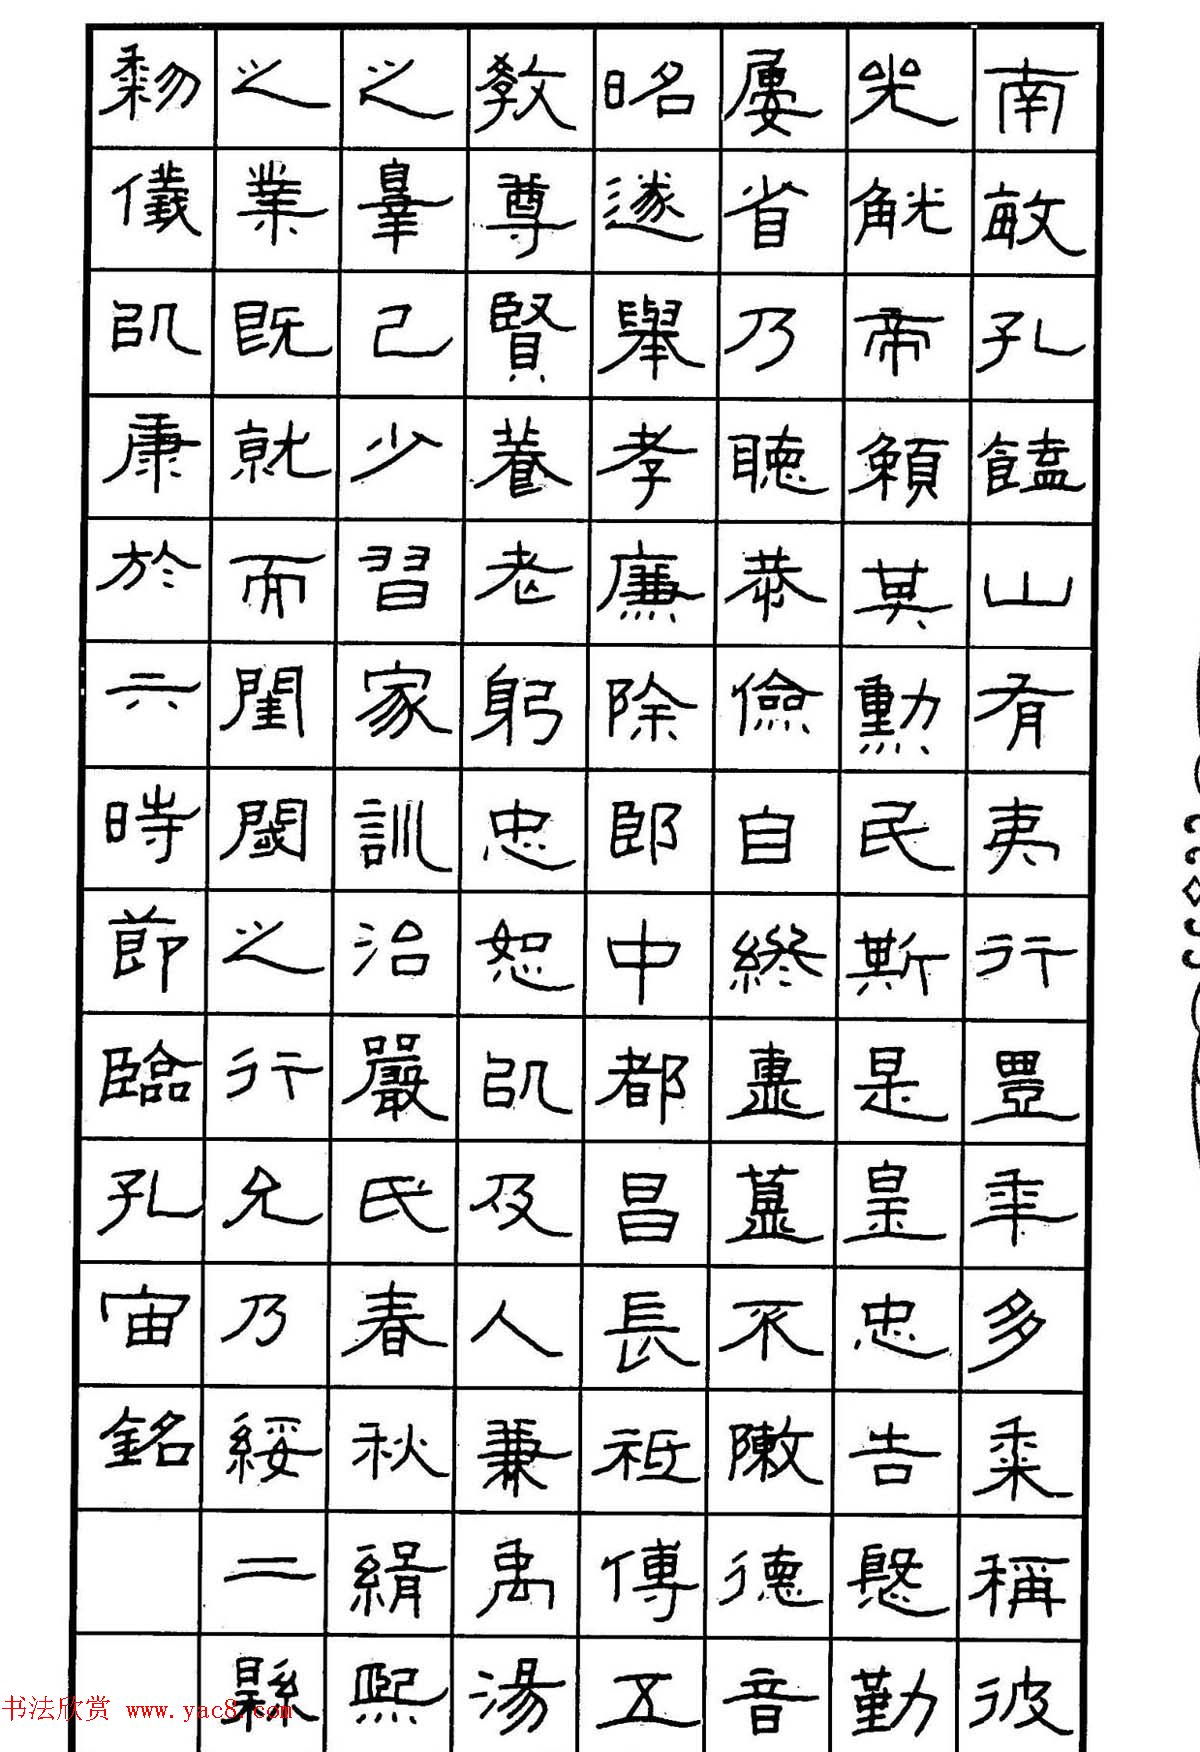 南畝孔饁山有夷行豐年多黍稱彼
光觥帝賴其勳民斯是皇忠告殷勤
屢省乃聽恭儉自終簠簋不敶德音
昭遂舉孝廉除郎中都昌長祗傅五
教尊賢養老躬忠恕以及人兼禹湯
之辠己少習家訓治嚴氏春秋緝熙
之業既就而閨閾之行允乃綏二縣
黎儀以康於亓時節臨孔宙銘
书法欣赏 www.yac8.com